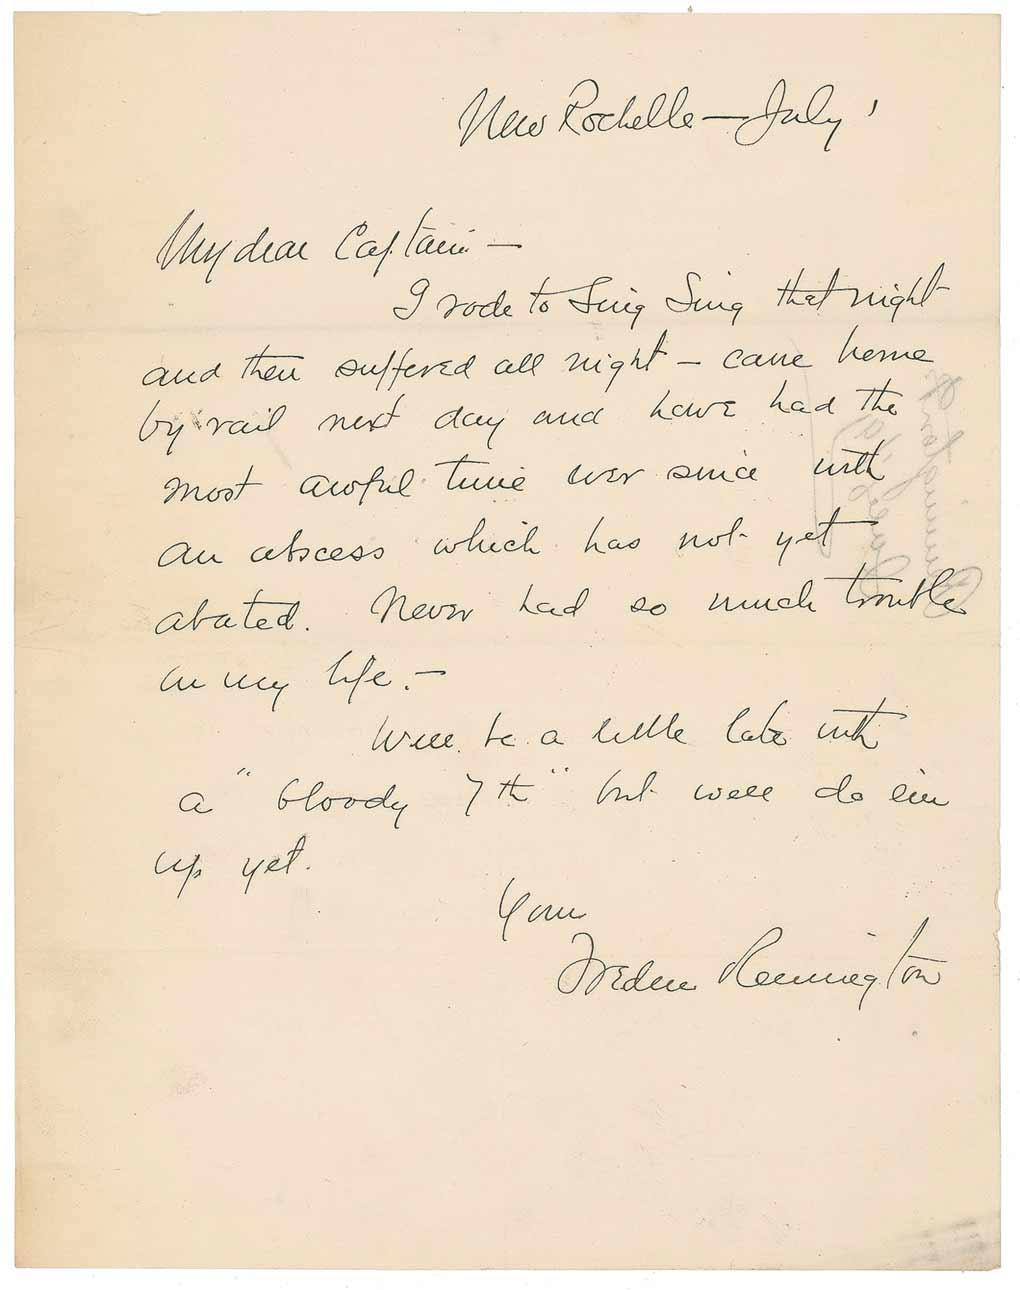 New Rochelle — July '
My dear Captain —
I rode to Sing Sing that night
and then suffered all night — came home
by rail next day and have had the
most awful time ever since with
an abscess which has not yet
abated. Never had so much trouble
in my life. —
Will be a little late with
a "bloody 7th" but will do
up yet.
Yours
Frederic Remington
Remington